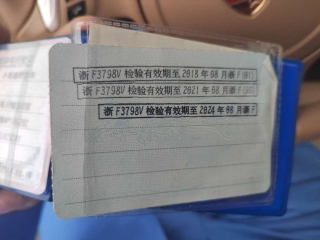 浙F3798V 检验有效期至 2018 年 08 月浙F
浙F3798V 检验有效期至 2021 年 08 月浙F
浙F3798V 检验有效期至 2024 年 08 月浙F